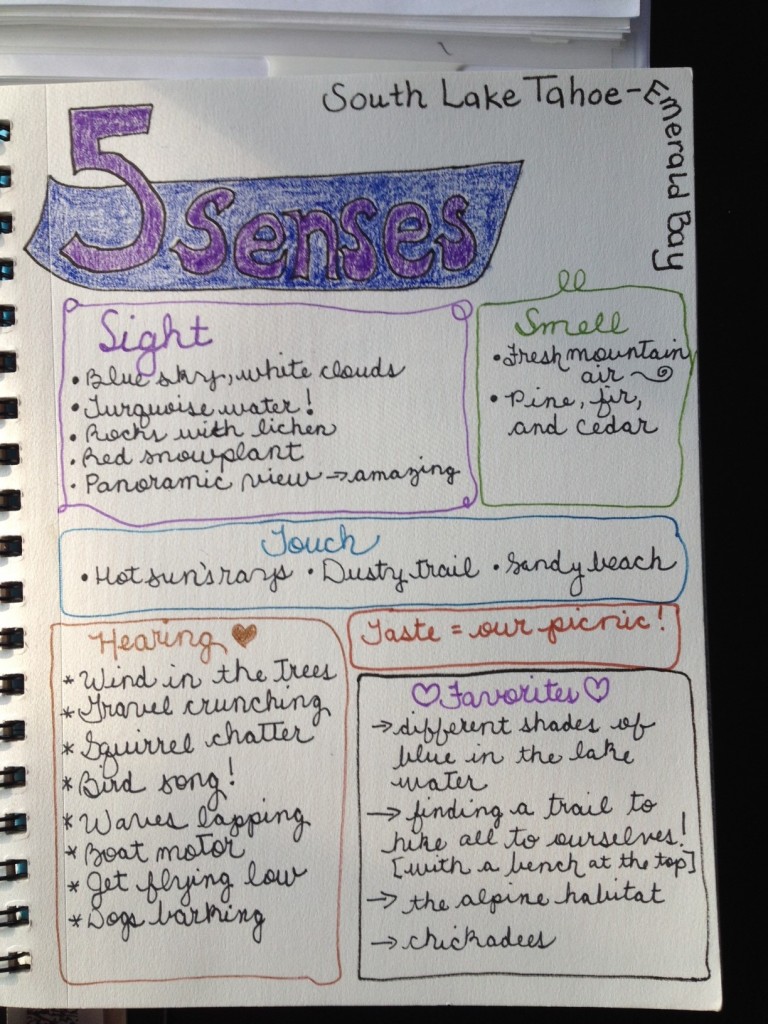 South Lake Tahoe - Emerald Bay
5 senses
Sight
• Blue sky, white clouds
• Turquoise water!
• Rocks with lichen
• Red snowplant
• Panoramic view → amazing
Smell
• Fresh mountain
air
• Pine, fir,
and cedar
Touch
• Hot sun's rays • Dusty trail • Sandy beach
Hearing
* Wind in the Trees
* Gravel crunching
* Squirrel chatter
* Bird song!
* Waves lapping
* Boat motor
* Jet flying low
* Dogs barking
Taste = our picnic!
♡ Favorites ♡
→ different shades of
blue in the lake
water
→ finding a trail to
hike all to ourselves!
[with a bench at the top]
→ the alpine habitat
→ chickadees